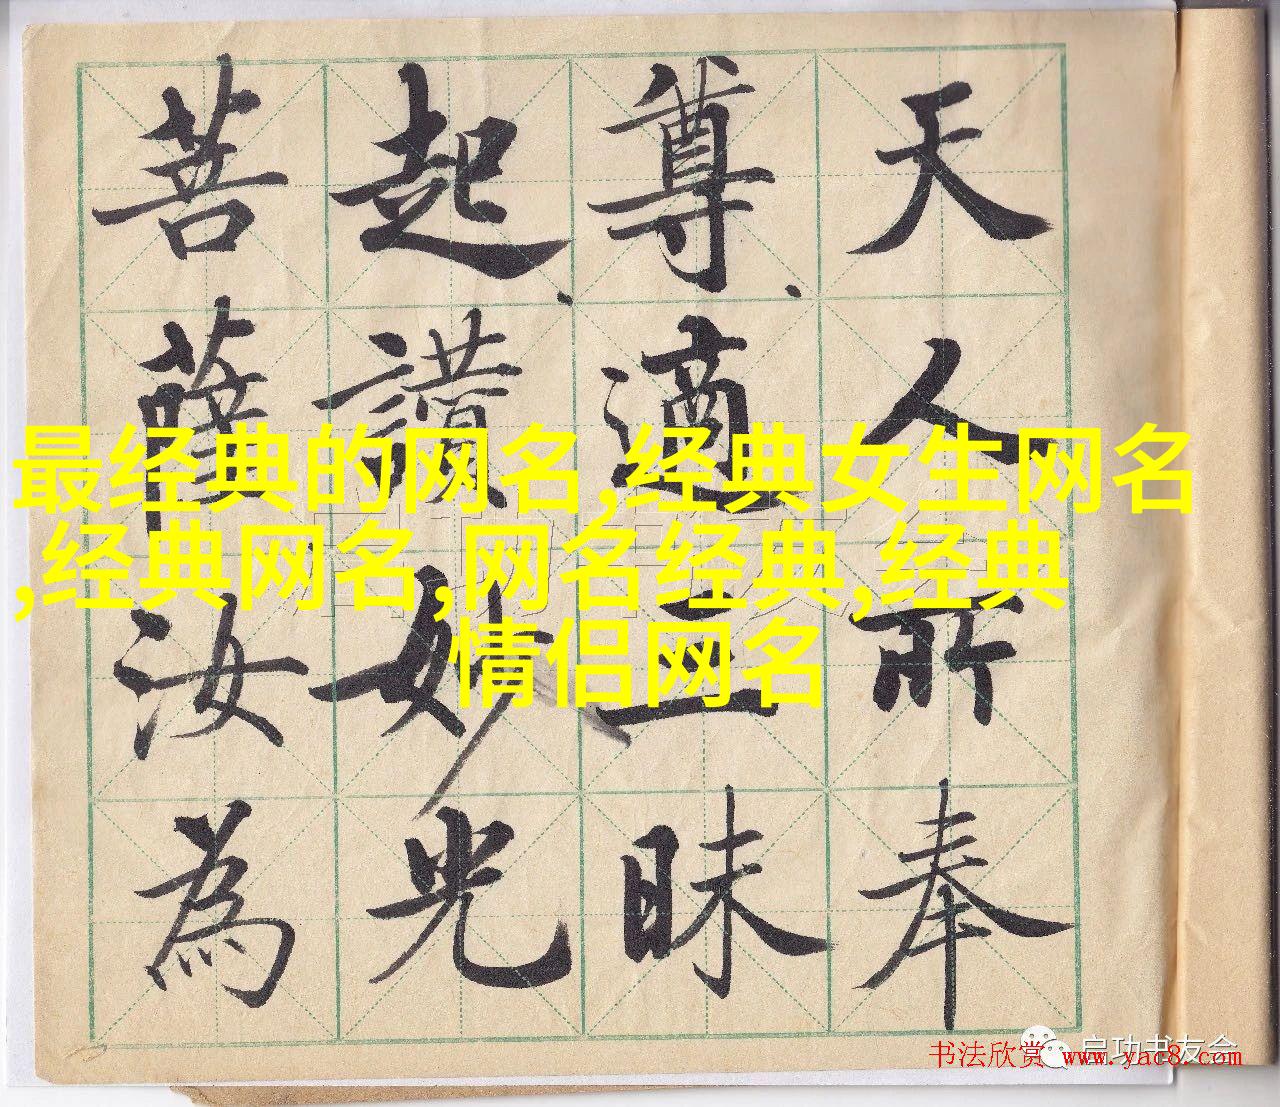 天人所奉
尊適三昧
起讃妙光
菩薩汝為
最经典的网名,经典女生网名
,经典网名,网名经典,经典
情侣网名
启功书友会
书法欣赏 www.yac8.com